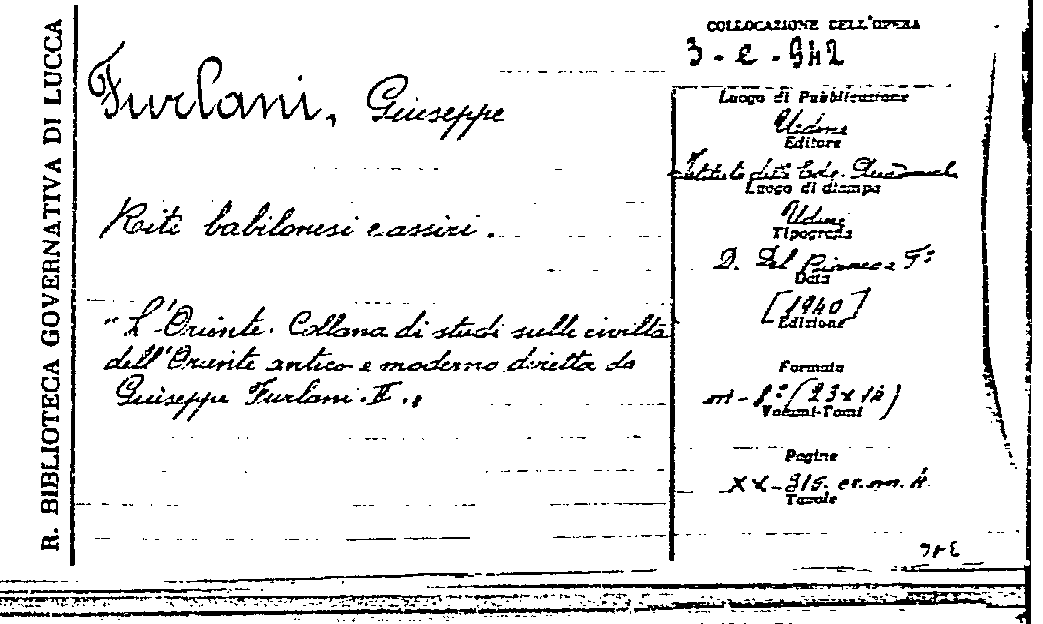 R. BIBLIOTECA GOVERNATIVA DI LUCCA
COLLOCAZIONE DELL'OPERA
3-e-942
Furlani, Giuseppe
Riti babilonesi e assiri.
"L'Oriente. Collana di studi sulle civiltà
dell'Oriente antico e moderno diretta da
Giuseppe Furlani. II.„
Luogo di Pubblicazione
Udine
Editore
Istituto delle Ediz.
Luogo di stampa
Udine
Tipografia
D. Del Bianco e F.º
Data
[1940]
Edizione
Formato
in-8º (23x14)
Volumi-Tomi
Pagine
XX-315.
Tavole